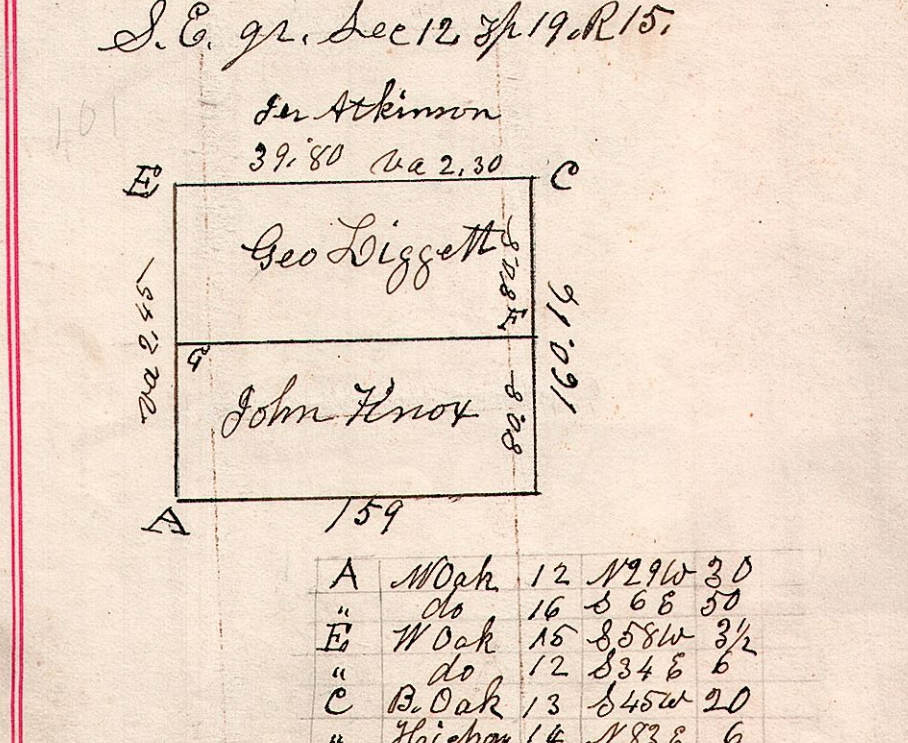 S.E. qr. Sec 12 Tp 19. R 15.
401
Jer Atkinson
39.80 Va 2.30
E C
Geo Liggett
80.8
F
Va 2.45
160.16
G
John Knox
80.8
A
159
A W Oak 12 N29W 30
" do 16 S 6 E 50
E W Oak 15 S58W 3½
" do 12 S34 E 6
C B. Oak 13 S45W 20
" 14 N83E 6